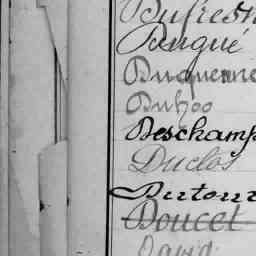 Dufresn
Duqué
Duquenne
Duhoo
Deschamp
Duclos
Dutour
Doucet
David